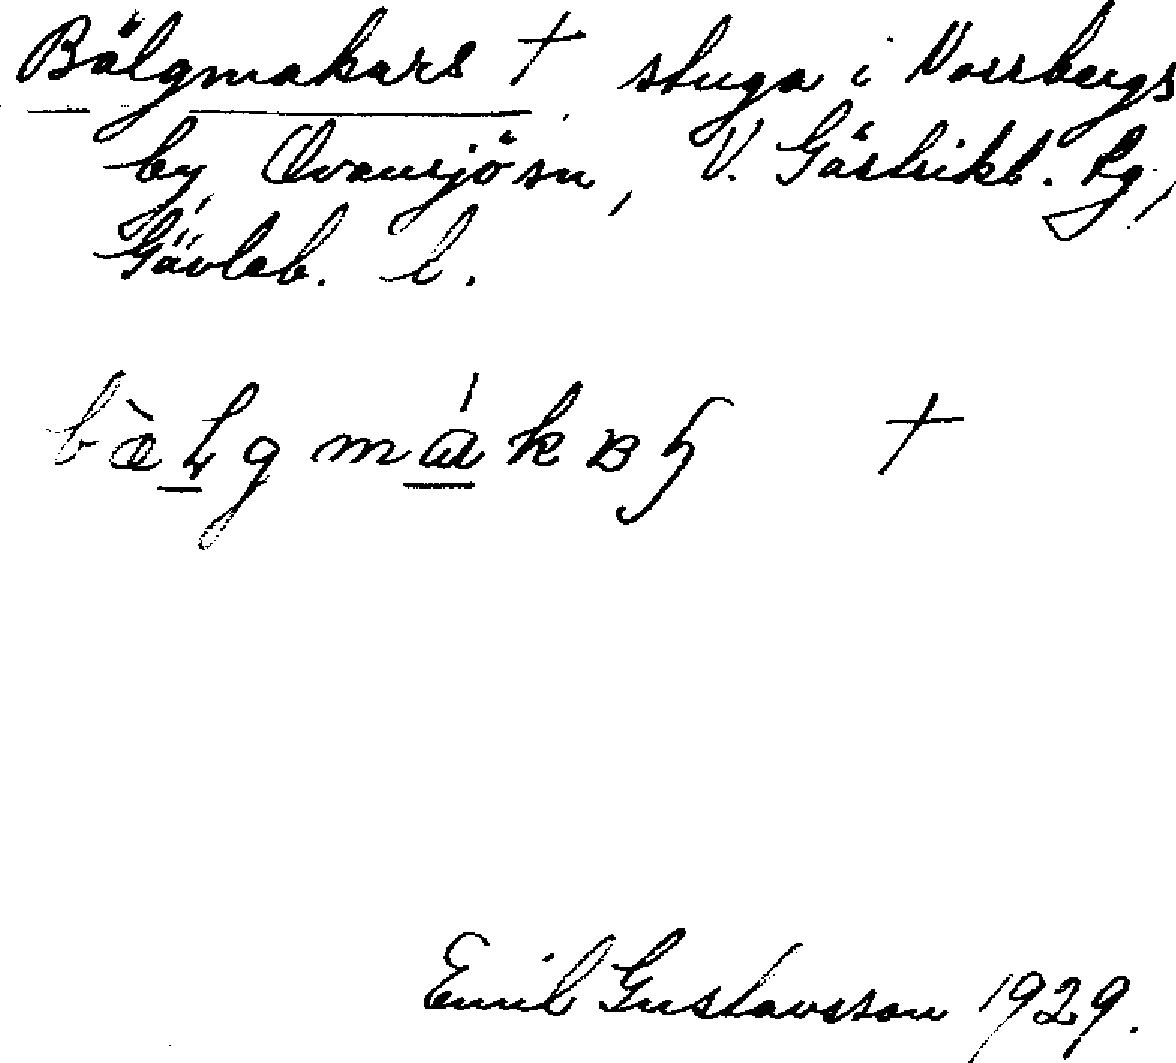 Bälgmakars † stuga i Norrbergs
by Ovansjö sn, V. Gästrikl. tg,
Gävleb. l.
†
Emil Gustavsson 1929.